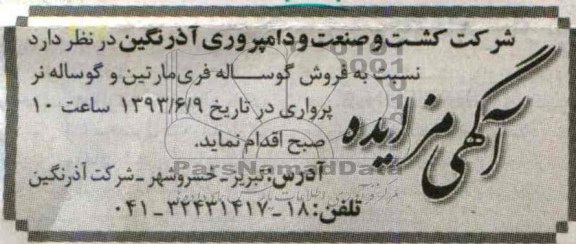 شرکت کشت و صنعت و دامپروری آذرنگین در نظر دارد
نسبت به فروش گوساله فری‌مارتین و گوساله نر
پرواری در تاریخ ۱۳۹۳/۶/۹ ساعت ۱۰
صبح اقدام نماید.
آگهی مزایده
آدرس: تبریز - خسروشهر - شرکت آذرنگین
تلفن: ۱۸ - ۳۲۴۳۱۴۱۷ - ۰۴۱
ParsNamadData